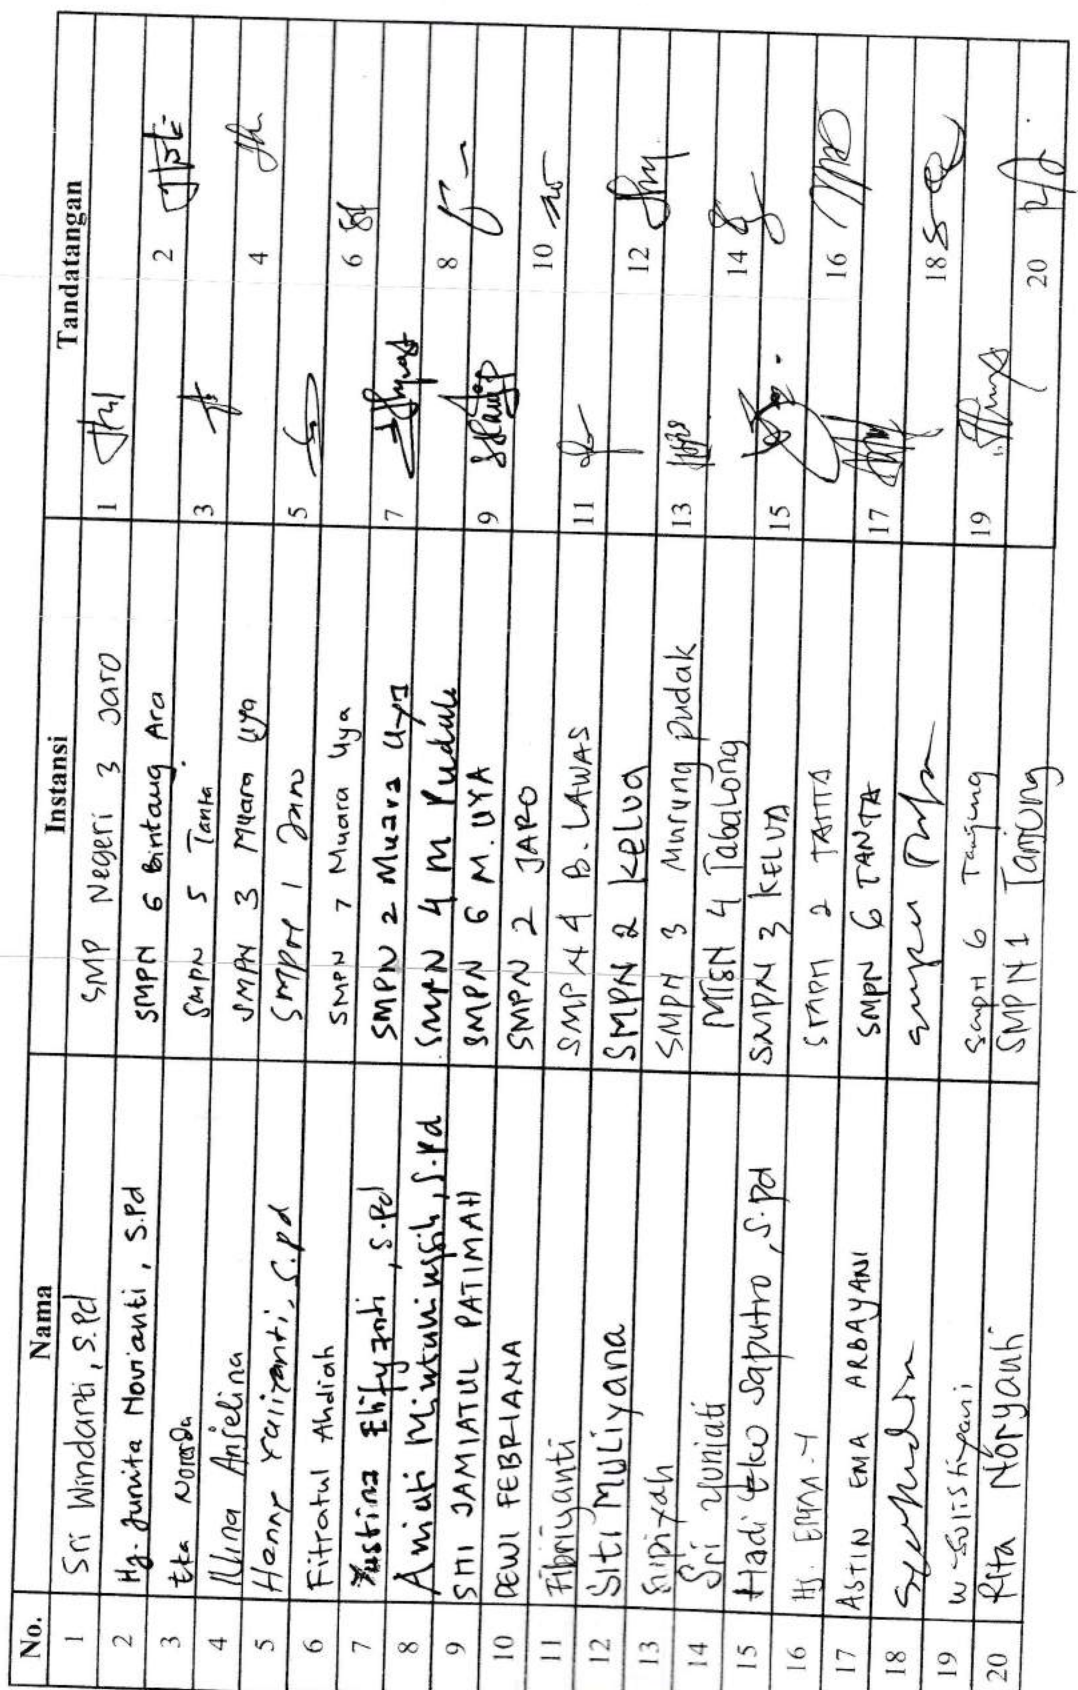 No. Nama Instansi Tandatangan
1 Sri Windarti, S.Pd SMP Negeri 3 Jaro 1
2 Hj. Junita Novianti, S.Pd SMPN 6 Bintang Ara 2
3 Eka Noresda SMPN 5 Tanta 3
4 Nina Anjelina SMPN 3 Muara Uya 4
5 Henny S.Pd SMPN 1 Jaro 5
6 Fitratul Ahdiah SMPN 7 Muara Uya 6
7 Yustina S.Pd SMPN 2 Muara Uya 7
8 S.Pd SMPN 4 M Pudak 8
9 SITI JAMIATUL PATIMAH SMPN 6 M. UYA 9
10 DEWI FEBRIANA SMPN 2 JARO 10
11 Fibriyanti SMPN 4 B. LAWAS 11
12 Siti MULiyana SMPN 2 KELUA 12
13 SMPN 3 Murung Pudak 13
14 Sri Yuniati MTSN 4 Tabalong 14
15 Hadi Eko Saputro, S.Pd SMPN 3 KELUA 15
16 Hj. SMPN 2 TANTA 16
17 ASTIN EMA ARBAYANI SMPN 6 TANTA 17
18 18
19 SMPN 6 Tanjung 19
20 Rita Noryanti SMPN 1 Tanjung 20